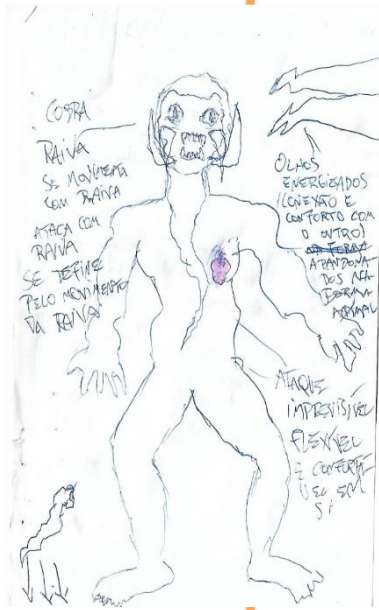 COBRA
RAIVA
SE MOVIMENTA
COM RAIVA
ATACA COM
RAIVA
SE DEFINE
PELO MOVIMENTO
DA RAIVA
OLHOS
ENERGIZADOS
(CONEXÃO E
CONFORTO COM
O OUTRO)
ABANDONA
DOS NA
FORMA
ANIMAL
ATAQUE
IMPREVISÍVEL
FLEXÍVEL
E CONFORTÁ
VEL EM
SI